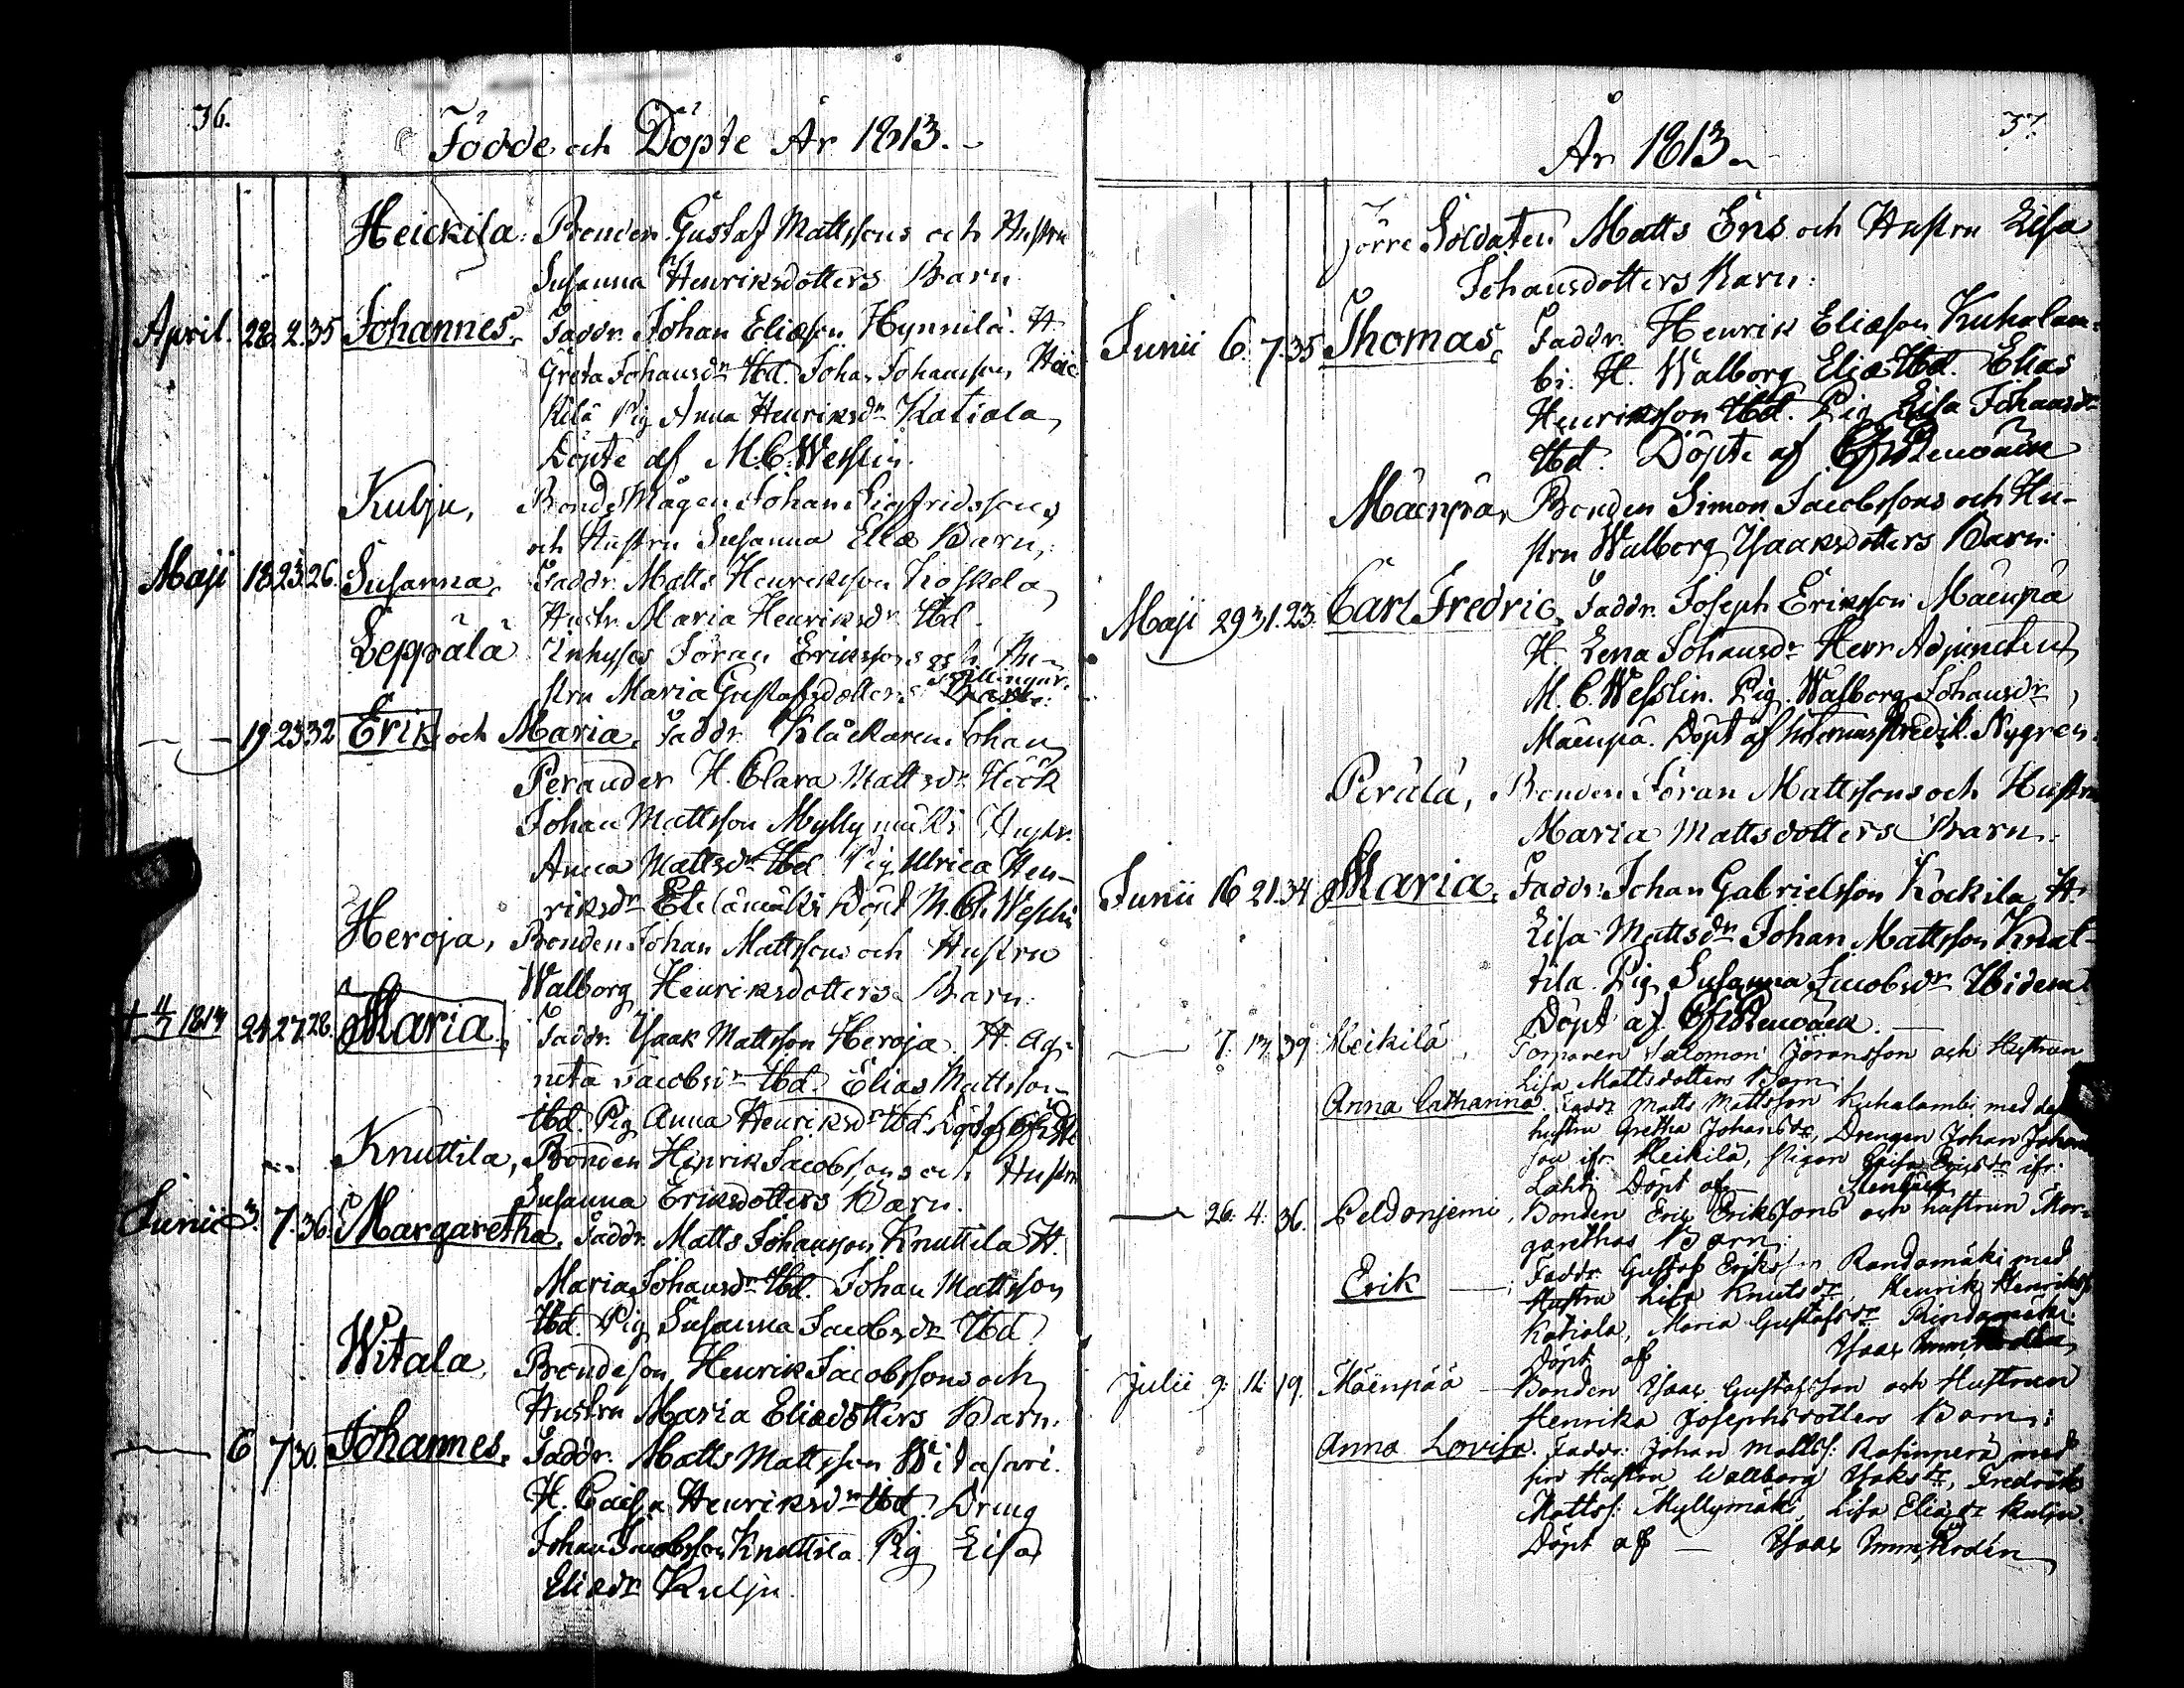 36.
Födde och Döpte År 1813.
Heickilä: Bonden Gustaf Mattssons och Hustru
Susanna Henriksdotters Barn
April. 28. 2. 35 Johannes. Faddr. Johan Eliæson Hynnilä. H.
Greta Johansdr Ibd. Johan Johansson Heic
kilä Pig Anna Henriksdr Katiala
Döpte af M. C. Wesslin.
Kulju, Bonde Mågen Johan Sigfridssons
och Hustru Susanna Eliæ Barn,
Maji 18 23. 26. Susanna. Faddr. Matts Henriksson Koskela
Hustr. Maria Henriksdr Ibd.
Leppälä Inhyses Jöran Erikssons och Hu-
stru Maria Gustafsdotters Tvillingar.
— 19 23 32 Erik och Maria. Faddr. Klåckaren Johan
Perander H. Clara Mattsdr Höök
Johan Mattsson Myllymäki Hustr.
Anna Mattsdr Ibd. Pig Ulrica Hen-
riksdr Etelämäki Döpt M. C. Wesslin
Heroja, Bonden Johan Mattssons och Hustru
Walborg Henriksdotters Barn.
† 4/7 1814 24 27 28. Maria. Faddr. Isaak Mattsson Heroja H. Ag-
neta Jacobsdr Ibd. Elias Mattsson
Ibd. Pig Anna Henriksdr Ibd. Döpt af
Knuttila, Bonden Henrik Jacobssons och Hustru
Susanna Eriksdotters Barn.
Junii 3. 7. 36. Margaretha. Faddr. Matts Johansson Knuttila H.
Maria Johansdr Ibd. Johan Mattsson
Ibd. Pig Susanna Jacobsdr Ibd.
Witala, Bondeson Henrik Jacobssons och
Hustru Maria Eliædotters Barn.
— 6 7 30. Johannes. Faddr. Matts Mattsson Widasari.
H. Caisa Henriksdr Ibd. Dreng
Johan Jacobsson Knuttila. Pig Lisa
Eliædr Kulju.
37.
År 1813.
Förre Soldaten Matts Ens och Hustru Lisa
Johansdotters Barn:
Junii 6. 7. 35 Thomas. Faddr. Henrik Eliæson Kuhalam-
bi. H. Walborg Eliæ Ibd. Elias
Henriksson Ibd. Pig Lisa Johansdr
Ibd. Döpte af
Mäenpää, Bonden Simon Jacobssons och Hu-
stru Walborg Isaaksdotters Barn.
Maji 29 31. 23. Carl Fredric. Faddr. Joseph Eriksson Mäenpä
H. Lena Johansdr Herr Adjuncten
M. C. Wesslin. Pig. Walborg Johansdr
Mäenpä. Döpt af Nygrén.
Perälä, Bonden Jöran Mattssons och Hustru
Maria Mattsdotters Barn.
Junii 16 21. 34 Maria. Faddr. Johan Gabrielsson Kockila H.
Lisa Mattsdr Johan Mattsson Knut-
tila. Pig Susanna Jacobsdr Ibidem
Döpt af
— 7. 13. 39 Heikilä, Torparen Salomon Jöransson och Hustrun
Lisa Mattsdotters Barn
Anna Catharina Faddr Matts Mattsson Kuhalambi med dess
hustru Gretha Johansdr, Drengen Johan Johans
son ifr. Heikilä, pigan ifr.
Lahti Döpt af
— 26. 4. 36. Peldonjemi, Bonden Eric Erikssons och hustrun Mar-
garethas Barn:
Erik — Faddr: Gustaf Eriksson Randamäki med
Hustru Lisa Knutsdr, Henrik Henrikss.
Katiala, Maria Gustafsdr Rindamäki.
Döpt af Isaac
Julii 9. 11. 19. Mäenpää — Bonden Isaac Gustafsson och Hustrun
Henrika Josephsdotters Barn:
Anna Lovisa. Faddr: Johan Mattss: med
sin Hustru Wallborg Isaksdr, Fredrik
Mattss: Myllymäki, Lisa Eliædr Kulju
Döpt af — Isaac